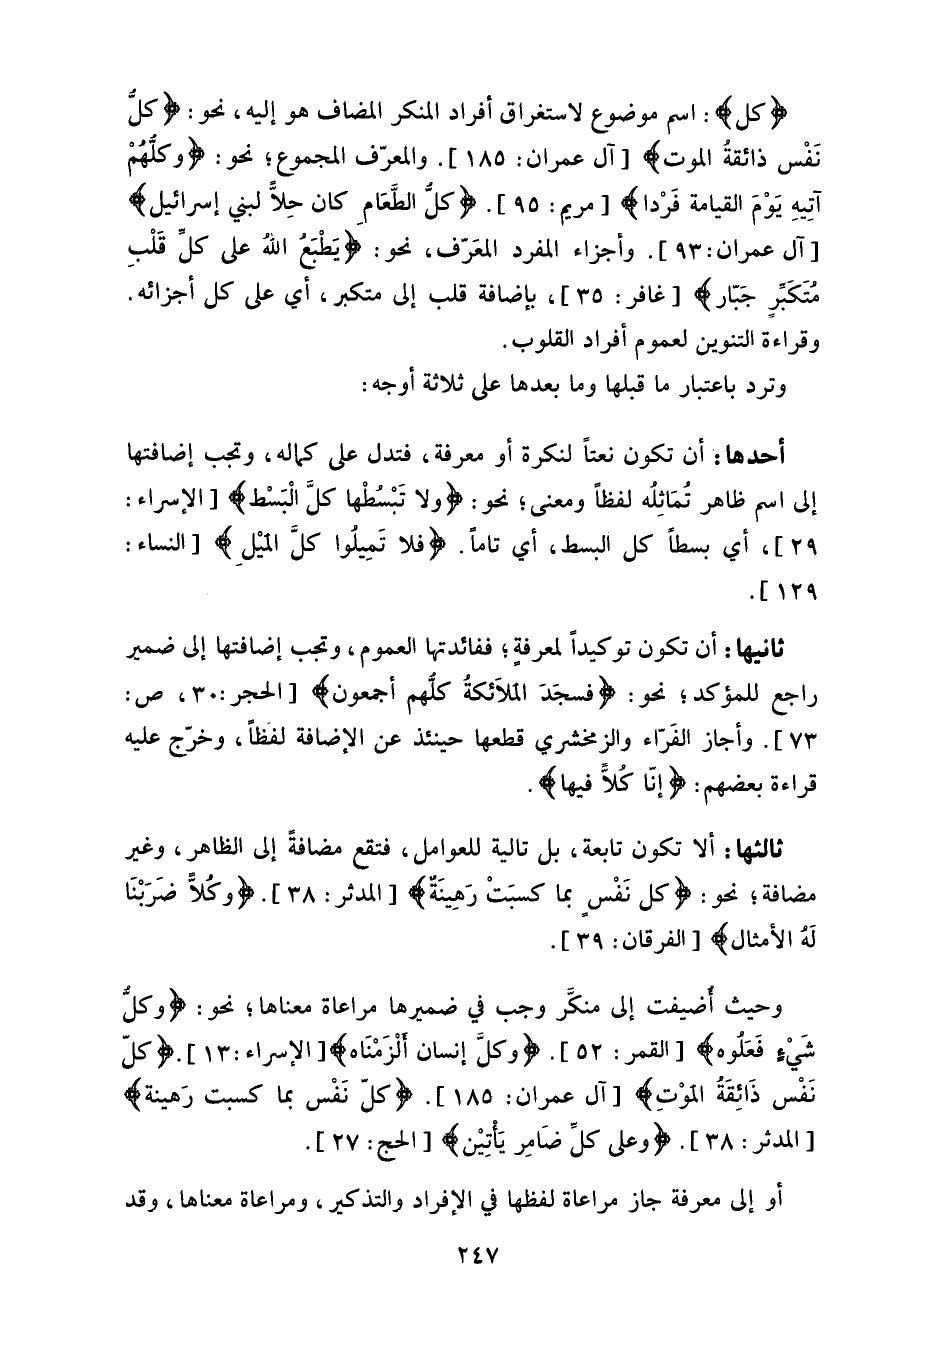 ﴿كل﴾: اسم موضوع لاستغراق أفراد المنكر المضاف هو إليه، نحو: ﴿كلُّ
نَفْس ذائقةُ الموت﴾ [آل عمران: ١٨٥]. والمعرّف المجموع؛ نحو: ﴿وكلُّهُمْ
آتِيهِ يَوْمَ القيامة فَرْدا﴾ [مريم: ٩٥]. ﴿كلُّ الطَّعَامِ كان حِلاًّ لبني إسرائيل﴾
[آل عمران:٩٣]. وأجزاء المفرد المعَرّف، نحو: ﴿يَطْبَعُ اللهُ على كلِّ قَلْبِ
مُتَكَبِّرٍ جَبّار﴾ [غافر: ٣٥]، بإضافة قلب إلى متكبر، أي على كل أجزائه.
وقراءة التنوين لعموم أفراد القلوب.
وترد باعتبار ما قبلها وما بعدها على ثلاثة أوجه:
أحدها: أن تكون نعتاً لنكرة أو معرفة، فتدل على كماله، وتجب إضافتها
إلى اسم ظاهر تُمَاثِلُه لفظاً ومعنى؛ نحو: ﴿ولا تَبْسُطْها كلَّ الْبَسْط﴾ [الإسراء:
٢٩]، أي بسطاً كل البسط، أي تاماً. ﴿فلا تَمِيلُوا كلَّ المَيْلِ﴾ [النساء:
١٢٩].
ثانيها: أن تكون توكيداً لمعرفةٍ؛ ففائدتها العموم، وتجب إضافتها إلى ضمير
راجع للمؤكد؛ نحو: ﴿فسجَدَ المَلاَئكةُ كلُّهم أجمعون﴾ [الحجر:٣٠، ص:
٧٣]. وأجاز الفَرّاء والزمخشري قطعها حينئذ عن الإضافة لفظاً، وخرّج عليه
قراءة بعضهم: ﴿إنّا كُلاًّ فيها﴾.
ثالثها: ألا تكون تابعة، بل تالية للعوامل، فتقع مضافةً إلى الظاهر، وغير
مضافة؛ نحو: ﴿كل نَفْسٍ بما كسبَتْ رَهِينَةٌ﴾ [المدثر: ٣٨]. ﴿وكُلاًّ ضَرَبْنَا
لَهُ الأمثال﴾ [الفرقان: ٣٩].
وحيث أُضيفت إلى منكَّر وجب في ضميرها مراعاة معناها؛ نحو: ﴿وكلُّ
شَيْءٍ فَعَلُوه﴾ [القمر: ٥٢]. ﴿وكلَّ إنسان أَلْزَمْنَاه﴾[الإسراء:١٣]. ﴿كلّ
نَفْس ذَائِقَةُ المَوْتِ﴾ [آل عمران: ١٨٥]. ﴿كلّ نَفْس بما كسبت رَهينة﴾
[المدثر: ٣٨]. ﴿وعلى كلِّ ضَامِر يَأْتِيْن﴾ [الحج: ٢٧].
أو إلى معرفة جاز مراعاة لفظها في الإفراد والتذكير، ومراعاة معناها، وقد
٢٤٧